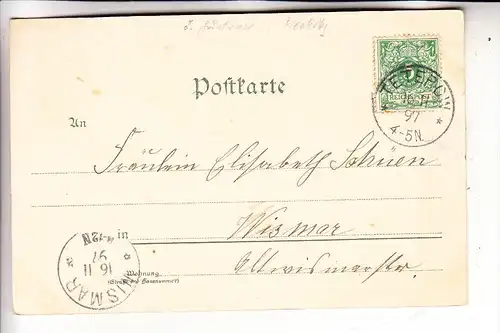 Postkarte
TETEROW
16 11
97
4-5N.
An
Fräulein Elisabeth Schuen
in
Wismar
Altwismarstr.
Wohnung
(Straße und Hausnummer)
WISMAR
16 11
97